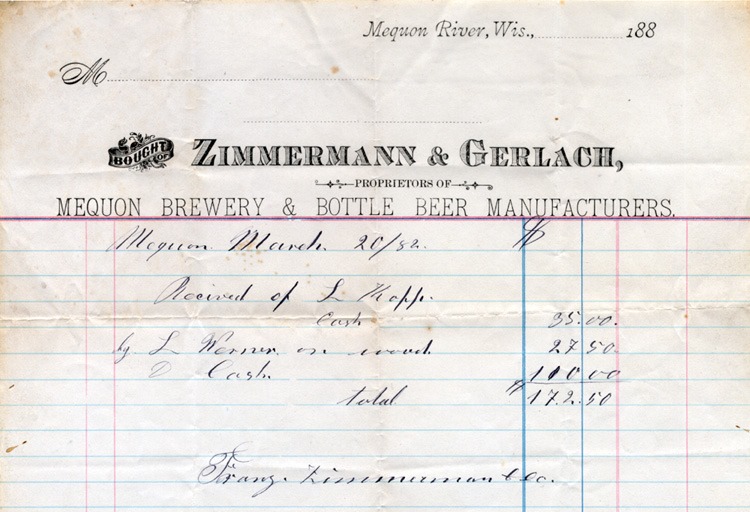 Mequon River, Wis., 188
M
BOUGHT OF
ZIMMERMANN & GERLACH,
PROPRIETORS OF
MEQUON BREWERY & BOTTLE BEER MANUFACTURERS.
Mequon March 20/82. $
Recived of L Kopp.
Cash 35.00.
by L Werner on wood 27 50
D Cash. 110 00
total $ 172.50
Franz. Zimmerman & Co.